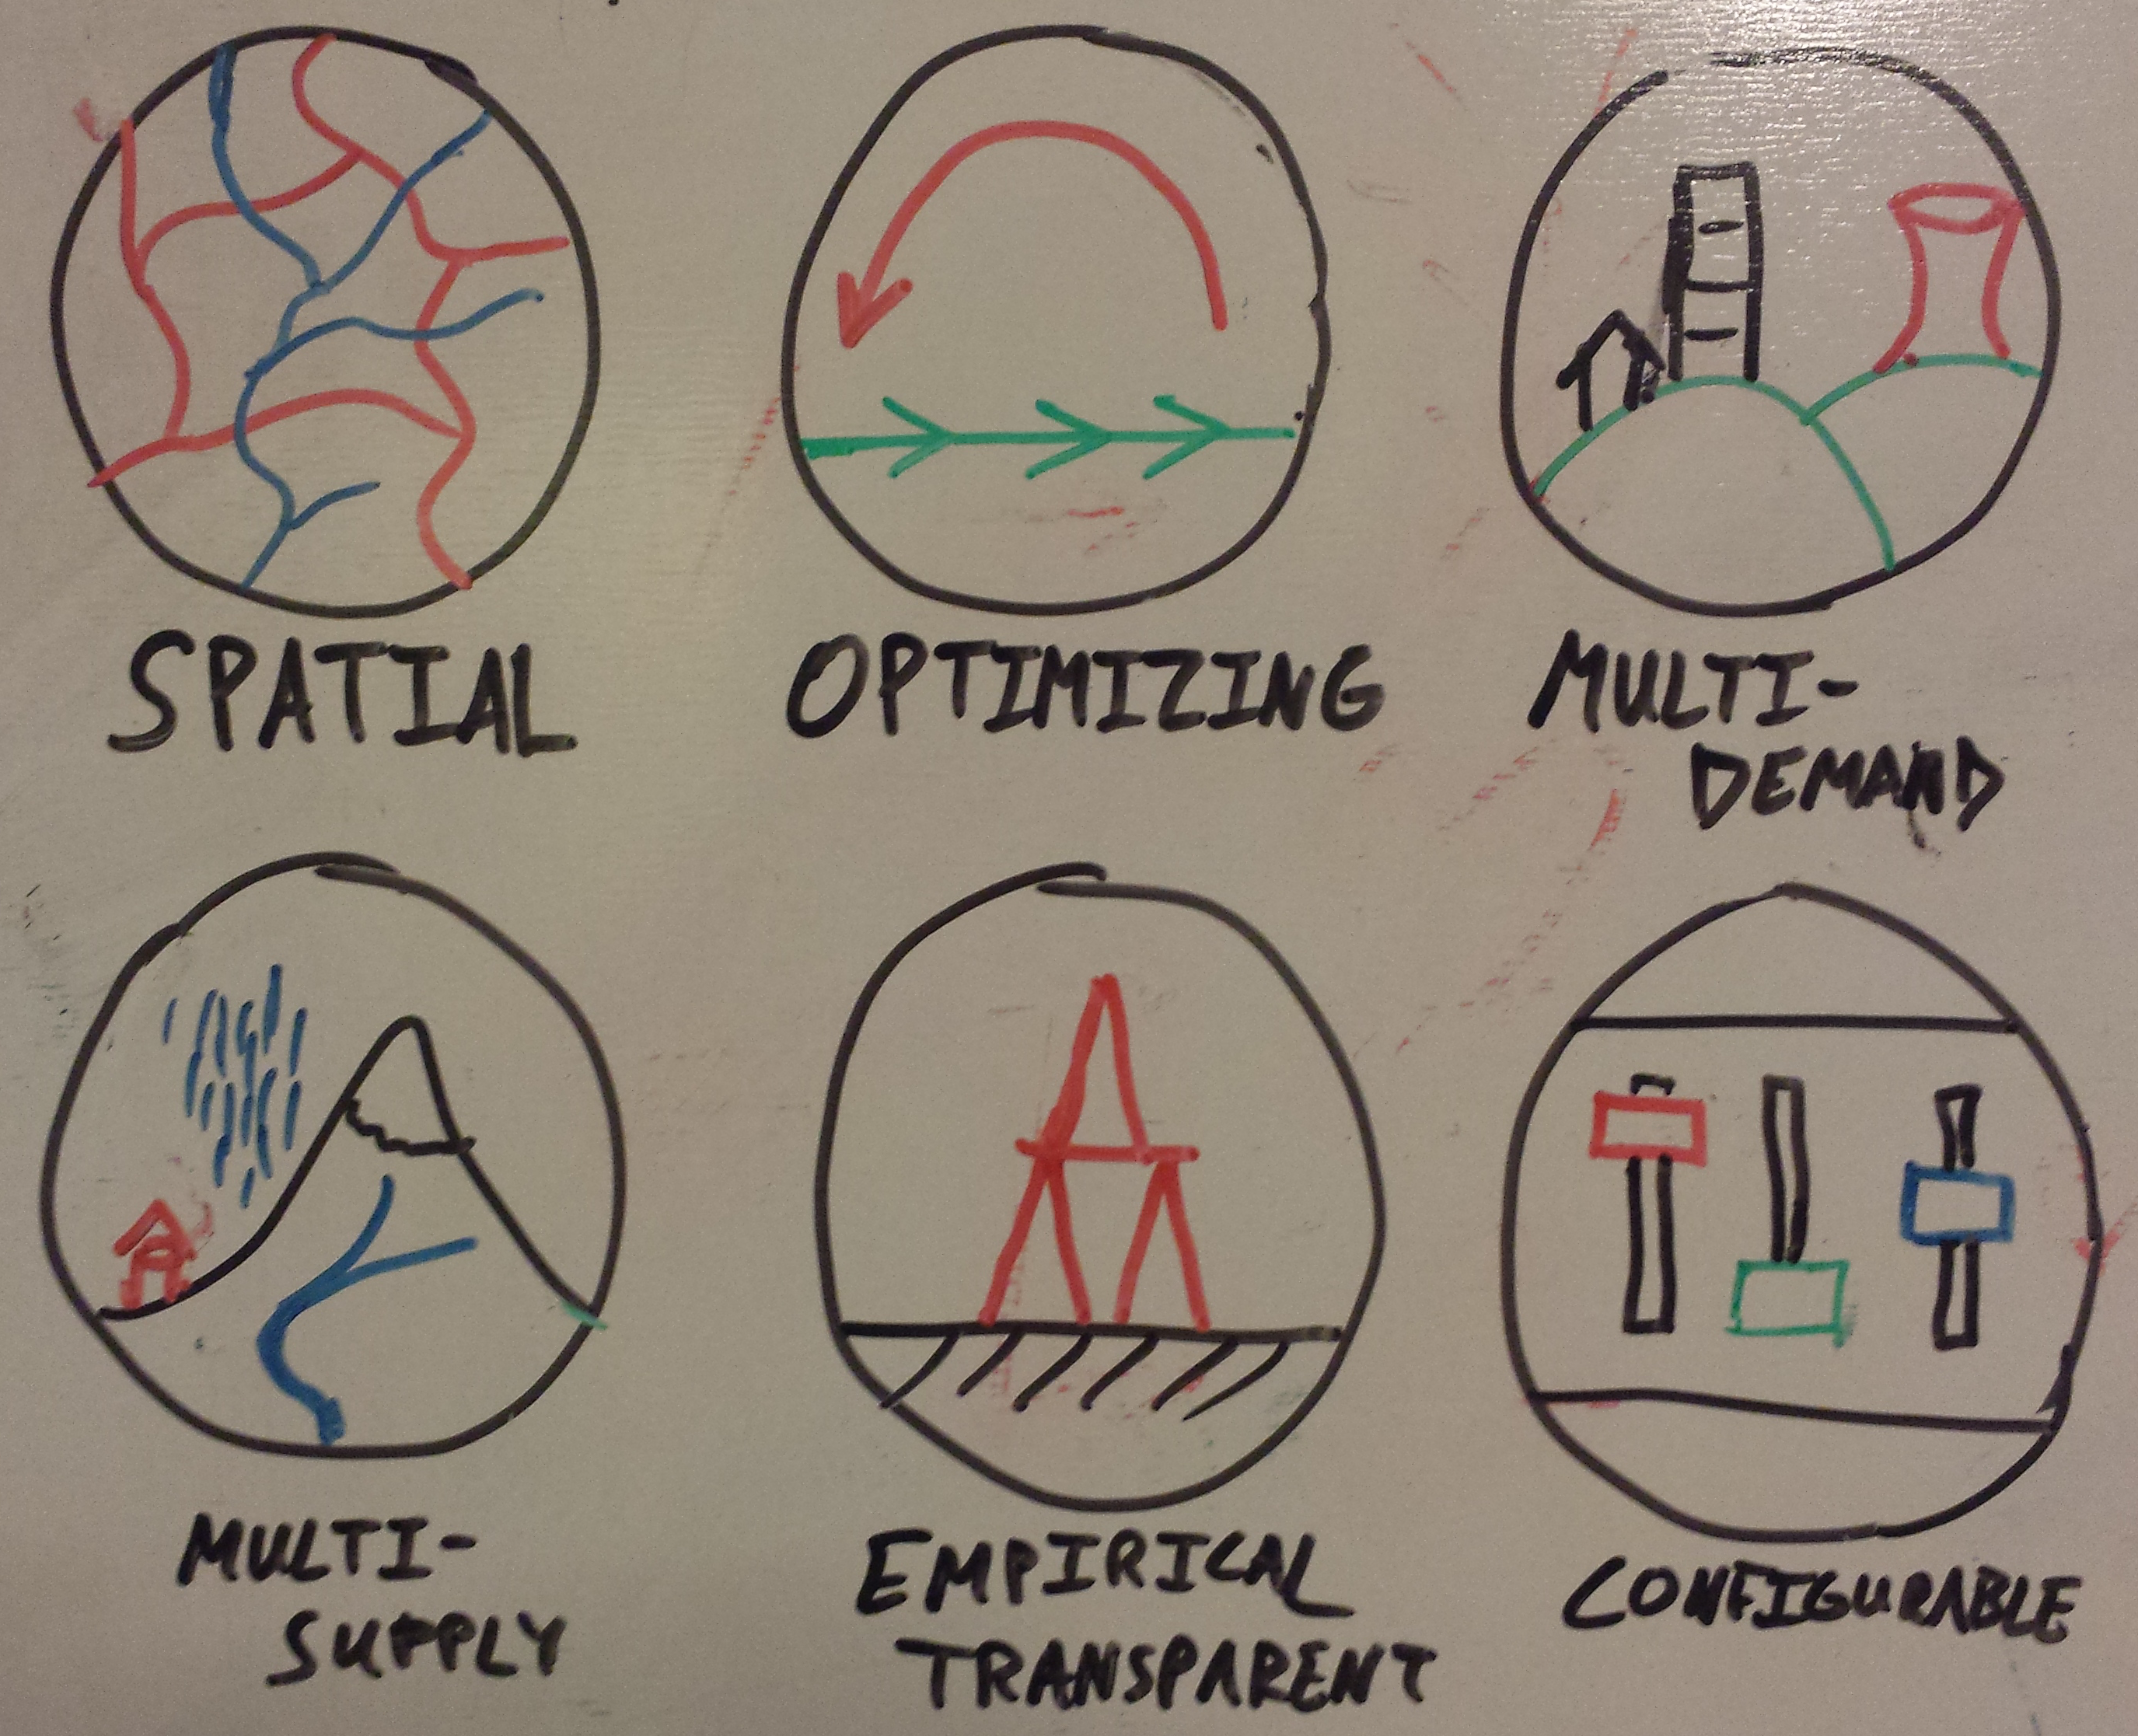 SPATIAL
OPTIMIZING
MULTI-
DEMAND
MULTI-
SUPPLY
EMPIRICAL
TRANSPARENT
CONFIGURABLE